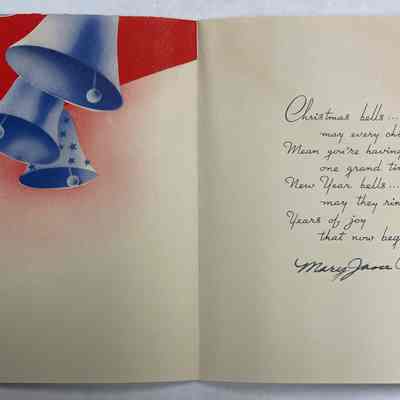 Christmas bells...
may every ch
Mean you're having
one grand tim
New Year bells...
may they rin
Years of joy
that now beg
Mary Jane